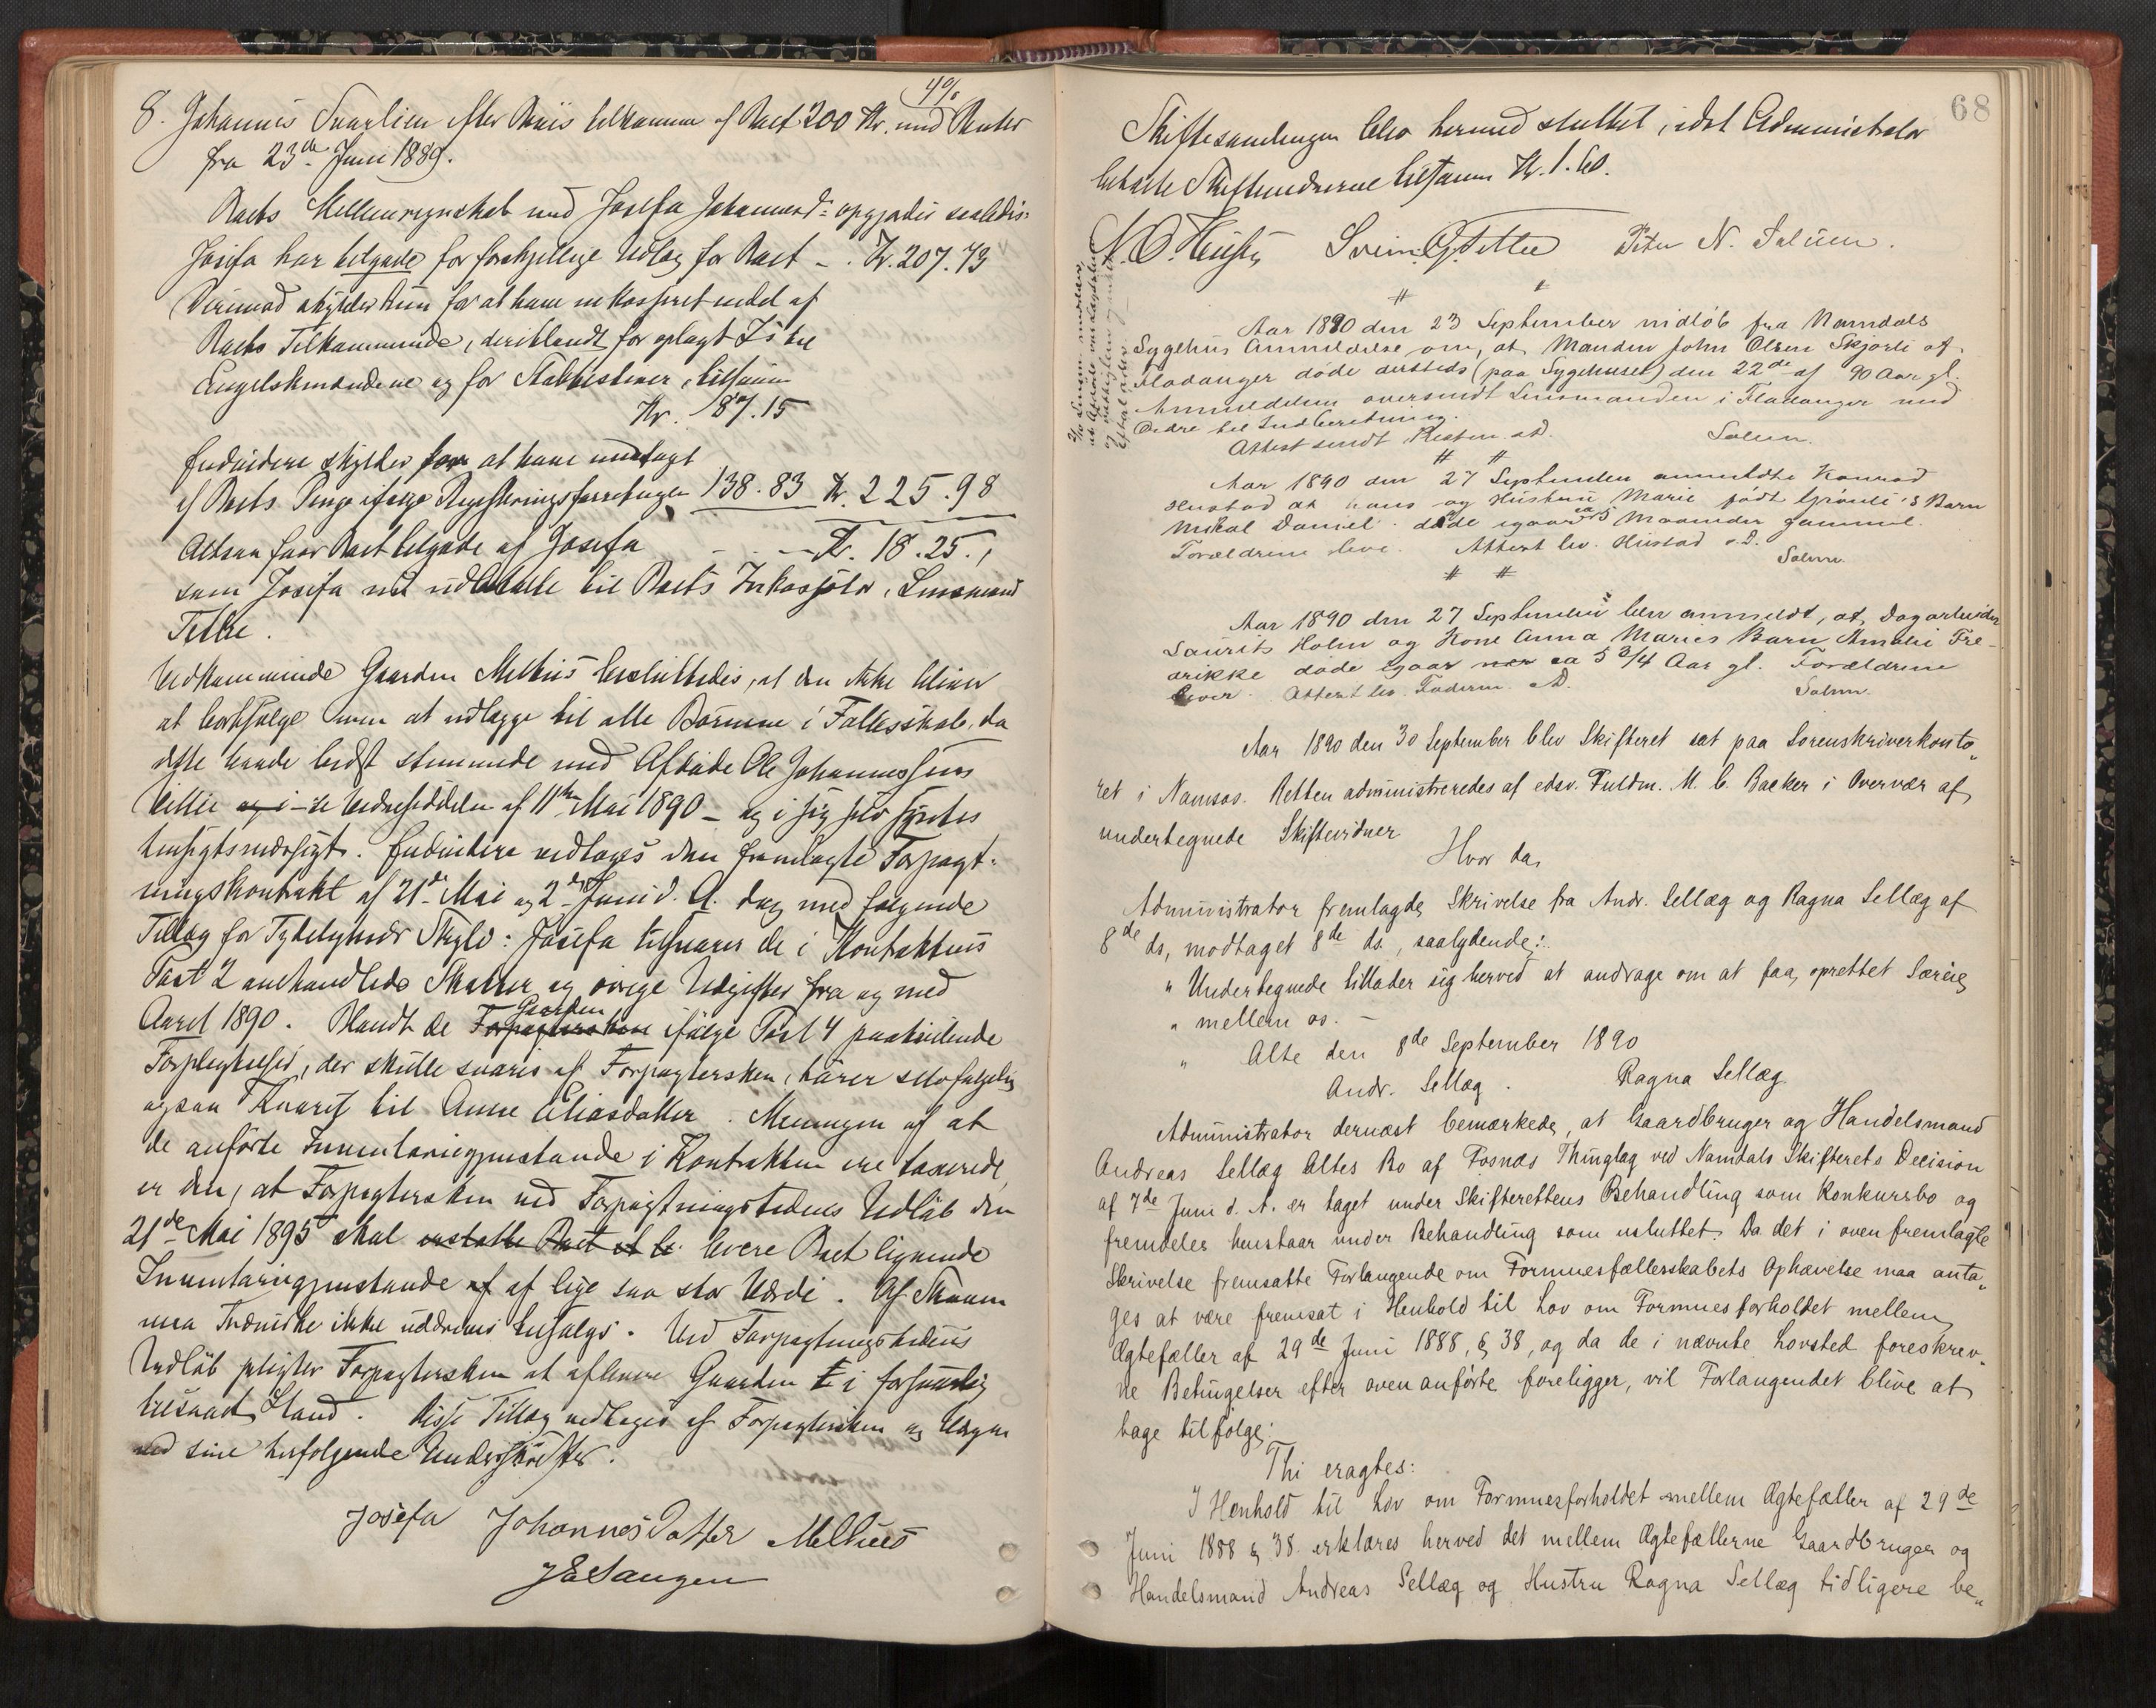 4%
8. Johannes Svarlien efter Bevis tilkomme af Boet 200 Kr. med Renter
fra 23de Juni 1889.
Boets Mellemregnskab med Josefa Johannesd. opgjordes saaledes:
Josefa har tilgode for forskjellige Udlæg for Boet - . Kr. 207.73
Derimod skylder hun for at have inkasseret endel af
Boets Tilkommende, deriblandt for oplagt Is til
Engelskmændene og for Stabbestener, tilsam
Kr. 87.15
Endvidere skylder for at have modtaget
af Boets Penge ifølge Registreringsforretningen 138.83 Kr. 225.98
Altsaa faar Boet tilgode af Josefa - . - Kr. 18.25.,
som Josefa nu udbetalte til Boets Inkassator, Lensmand
Tetlie.
Vedkommende Gaarden Melhus besluttedes, at den ikke bliver
at bortsælge men at udlægge til alle Børnene i Fællesskab, da
dette havde bedst stemmende med Afdøde Ole Johannessens
Villie og i Vedørsseddelen af 11te Mai 1890 - og i sig selv syntes
hensigtsmæssigt. Endvidere vedtoges den fremlagte Forpagt-
ningskontrakt af 21de Mai og 2de Juni d. A. dog med følgende
Tillæg for Tydelighedens Skyld: Josefa tilsvarer de i Kontraktens
Post 2 omhandlede Skatter og øvrige Udgifter fra og med
Aaret 1890. Blandt de Forpagtersken Gaarden ifølge Post 4 paahvilende
Forpligtelser, der skulle svares af Forpagtersken, hører selvfølgelig
ogsaa Kaaret til Anne Eliasdatter. Meningen af at
de anførte Inventariegjenstande i Kontrakten ere taxerede,
er den, at Forpagtersken ved Forpagtningstidens Udløb den
21de Mai 1895 skal erstatte Boet levere Boet lignende
Inventariegjenstande af af lige saa stor Værdi. Af Skoven
maa Trævirke ikke uddrives tilsalgs. Ved Forpagtningstidens
Udløb pligter Forpagtersken at aflevere Gaarden i forsvarlig
tilsaaet Stand. Disse Tillæg vedtoges af Forpagtersken og Værgen
ved sine herfølgende Underskrifter.
Josefa Johannes Datter Melhus
J E Saugen
68
Skiftesamlingen blev hermed sluttet, idet Administrator
betalte Skiftevidnerne tilsamm Kr. 1.60.
Svein G. Tetlie Peter N. Saluen.
Aar 1890 den 23 September indløb fra Namdals
Sygehus Anmeldelse om, at Manden John Olsen Skjørli af
Fladanger døde dersteds (paa Sygehuset) den 22de af 90 Aar gl.
Anmeldelsen oversendt Lensmanden i Fladanger med
Ordre til Indberetning.
Attest sendt Presten s.D.
Saluen.
Aar 1890 den 27 September anmeldte Konrad
Hustad at hans og Hustru Marie født Grønli's Barn
Mikal Daniel døde igaar ca 5 Maaneder gammel.
Forældrene leve. Attest lev. Hustad s.D.
Saluen.
Aar 1890 den 27 September blev anmeldt, at Dagarbeider
Laurits Holm og Kone Anna Maries Barn Amalie Fre-
drikke døde igaar ca 5 3/4 Aar gl. Forældrene
lever. Attest lev. Faderen s.D.
Saluen.
Aar 1890 den 30 September blev Skifteret sat paa Sorenskriverkonto„
ret i Namsos. Retten administreredes af edsv. Fuldm. M. C. Backer i Overvær af
undertegnede Skiftevidner
Hvor da,
Administrator fremlagde Skrivelse fra Andr. Sellæg og Ragna Sellæg af
8de ds, modtaget 8de ds., saalydende:
„ Undertegnede tillader sig herved at andrage om at faa oprettet Særeie
„ mellem os. -
„ Alte den 8de September 1890
Andr. Sellæg. Ragna Sellæg
Administrator dernæst bemærkede, at Gaardbruger og Handelsmand
Andreas Sellæg Altes Bo af Fosnæs Thinglag ved Namdals Skifterets Decision
af 7de Juni d. A. er taget under Skifterettens Behandling som Konkursbo og
fremdeles henstaar under Behandling som usluttet. Da det i oven fremlagte
Skrivelse fremsatte Forlangende om Formuesfællesskabets Ophævelse maa anta„
ges at være fremsat i Henhold til Lov om Formuesforholdet mellem
Ægtefæller af 29de Juni 1888, § 38, og da de i nævnte Lovsted foreskrev„
ne Betingelser efter oven anførte foreligger, vil Forlangendet blive at
tage tilfølge;
Thi eragtes:
I Henhold til Lov om Formuesforholdet mellem Ægtefæller af 29de
Juni 1888 § 38 erklæres herved det mellem Ægtefællerne Gaardbruger og
Handelsmand Andreas Sellæg og Hustru Ragna Sellæg tidligere be„